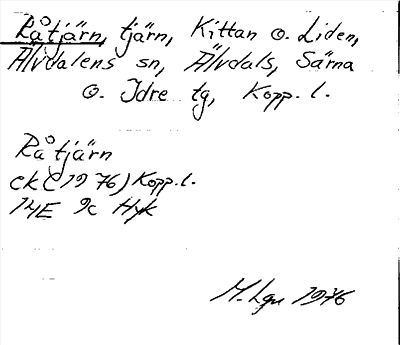 Råtjärn, tjärn, Kittan o. Liden,
Älvdalens sn, Älvdals, Särna
o. Idre tg, Kopp. l.
Råtjärn
ekC(1976) Kopp.l.
14E 9c Hyk
M. Lgu 1976